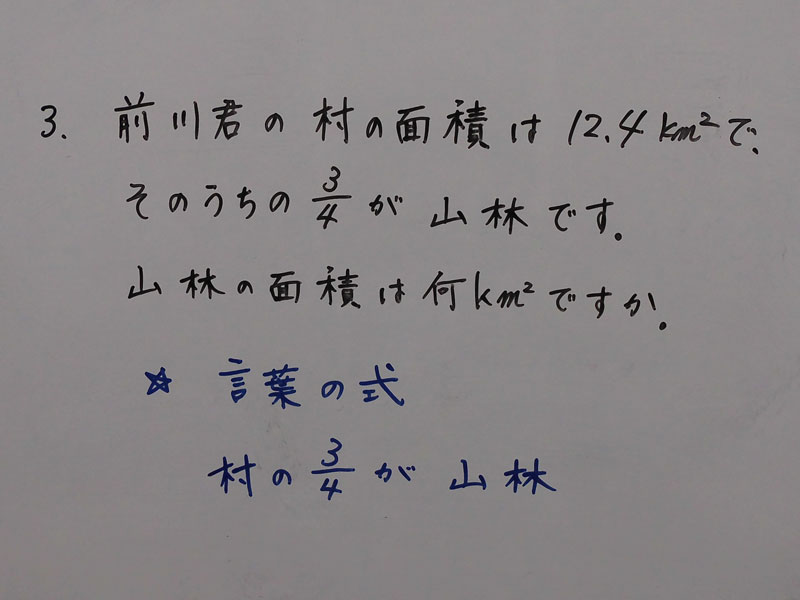 3. 前川君の村の面積は12.4km²で、
そのうちの3/4が山林です。
山林の面積は何km²ですか。
☆ 言葉の式
村の3/4が山林